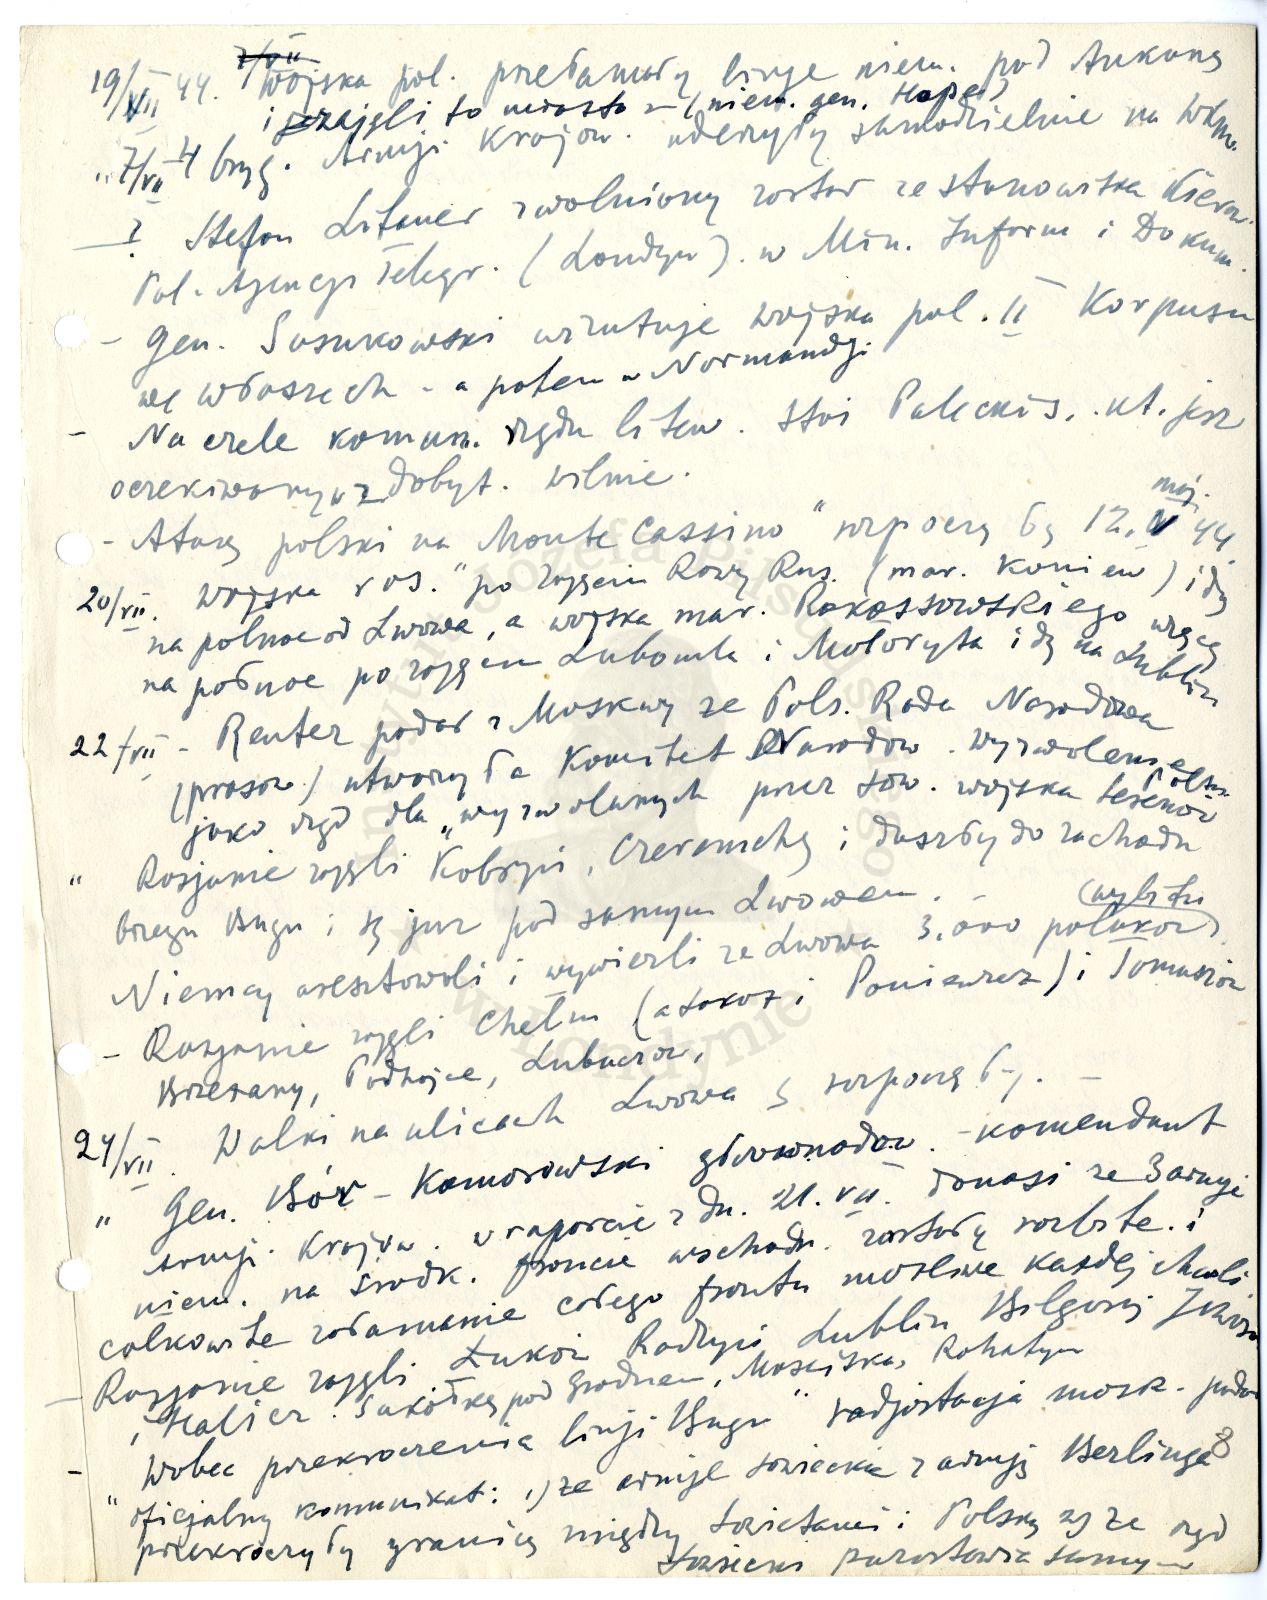 7/VII
19/VII 44. Wojska pol. przełamały linje niem. pod Ankoną
i zajęli to miasto – (niem. gen. Hope)
" 7/VII 4 bryg. Armji Krajow. uderzyły samodzielnie na Wilno.
– ? Stefan Litauer zwolniony został ze stanowiska Kierow.
Pol. Agencji Telegr. (Londyn). w Min. Inform i Dokum.
– Gen. Sosnkowski wizytuje wojska pol. II Korpusu
we Włoszech – a potem w Normandji
– Na czele komun. rządu litew. stoi Paleckis, kt. jest
oczekiwany w zdobyt. Wilnie.
– Atak polski na Monte Cassino" rozpoczął się 12. V maj. 44.
20/VII. Wojska ros." po zajęciu Rawy Rus. (mar. Koniew) idą
na północ od Lwowa, a wojska mar. Rokossowskiego więcej
na północ po zajęciu Lubomla i Małoryta idą na Lublin
22/VII – Reuter podał z Moskwy ze Pols. Rada Narodowa
(prosow) utworzyła Komitet Narodow. wyzwolenie Polski
jako rząd dla „wyzwolanych przez sow. wojska terenów
" Rosjanie zajęli Kobryń, Czeremchę i doszły do zachodu
brzegu Bugu i są juz pod samym Lwowem. –
Niemcy aresztowali i wywiezli ze Lwowa 3.000 polaków (wybitn
– Rosjanie zajęli Chełm (a Łokacz i Poniewież) i Tomaszów
Brzezany, Podhajce, Lubaczów,
24/VII. Walki na ulicach Lwowa rozpoczęły. –
" Gen. Bór – Komorowski głównodow. – komendant
armji. Krajow. w raporcie z dn. 21. VII. donosi ze 3 armje
niem. na środk. froncie wschodn. zostały rozbite. i
całkowite załamanie całego frontu możliwe każdej chwili
– Rosjanie zajęli Łuków Radzyń Lublin Biłgoraj
i Halicz. Sokółkę pod Grodnem, Mościska, Rohatyn
– Wobec przekroczenia linji Bugu" radjostacja mosk. podaje
" oficjalny komunikat: 1) ze armje sowieckie z armją Berlinga 8
przekroczyły granicę między Sowietami i Polską 2) ze rząd
sowiecki pozostawia samym